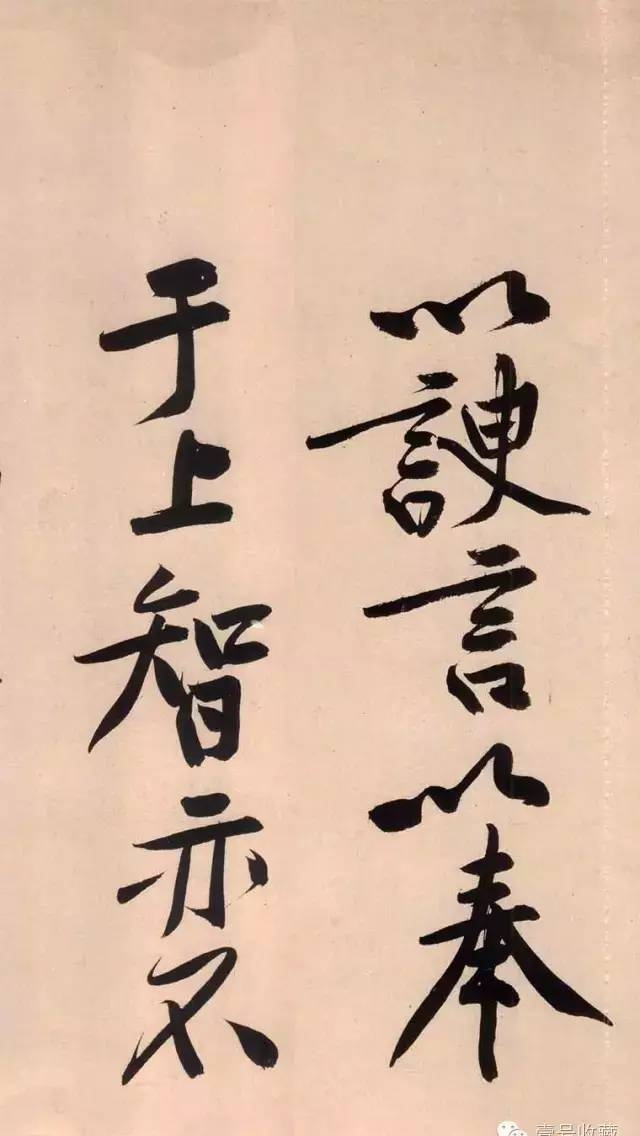 以諛言以奉
于上智亦不
壹号收藏